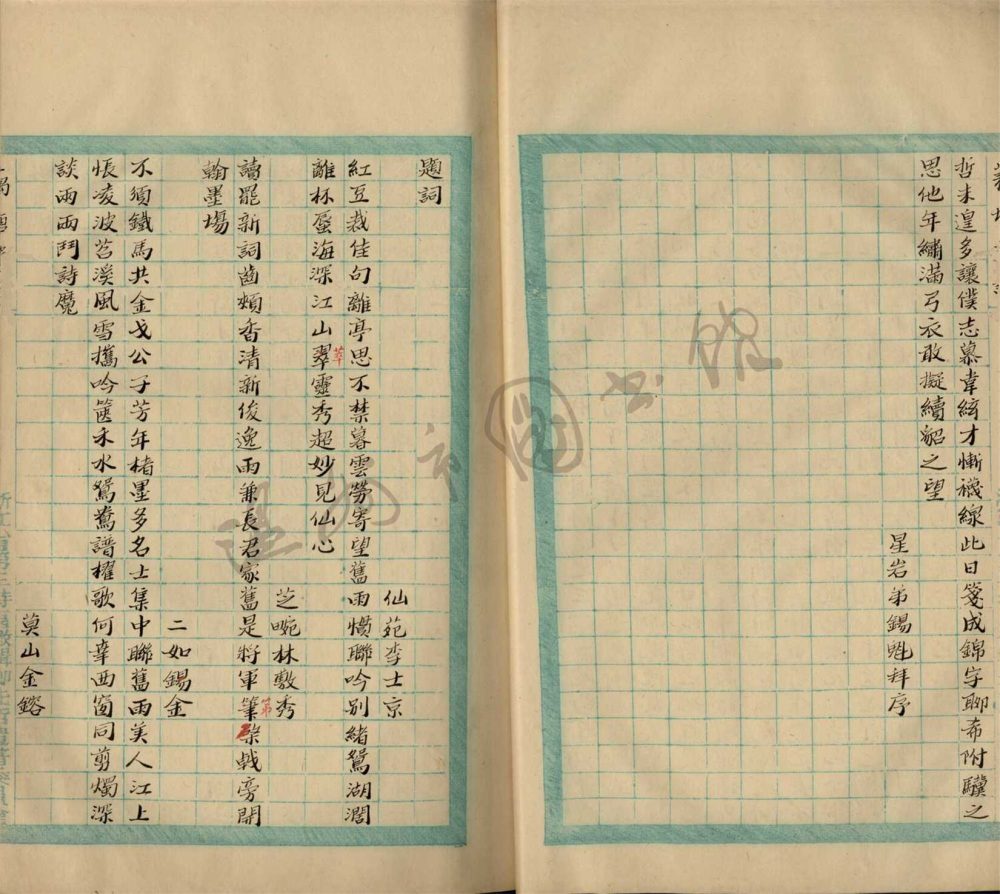 哲未遑多讓僕志慕韋絃才慚襪線此日箋成錦字聊希附驥之
思他年繡滿弓衣敢擬續貂之望
星岩弟錫魁拜序
題詞
仙苑李士京
紅豆裁佳句離亭思不禁暮雲勞寄望舊雨慣聯吟別緒鴛湖濶
離杯蜃海深江山翠靈秀超妙見仙心
萃
芝畹林敷秀
讀罷新詞齒頰香清新俊逸兩兼長君家舊是將軍筆棨戟旁開
第
翰墨場
二如錫金
不須鐵馬共金戈公子芳年楮墨多名士集中聯舊雨美人江上
悵凌波苕溪風雪攜吟篋禾水鴛鴦譜櫂歌何幸西窗同剪燭深
談兩兩鬥詩魔
莫山金鎔
溫州市圖書館